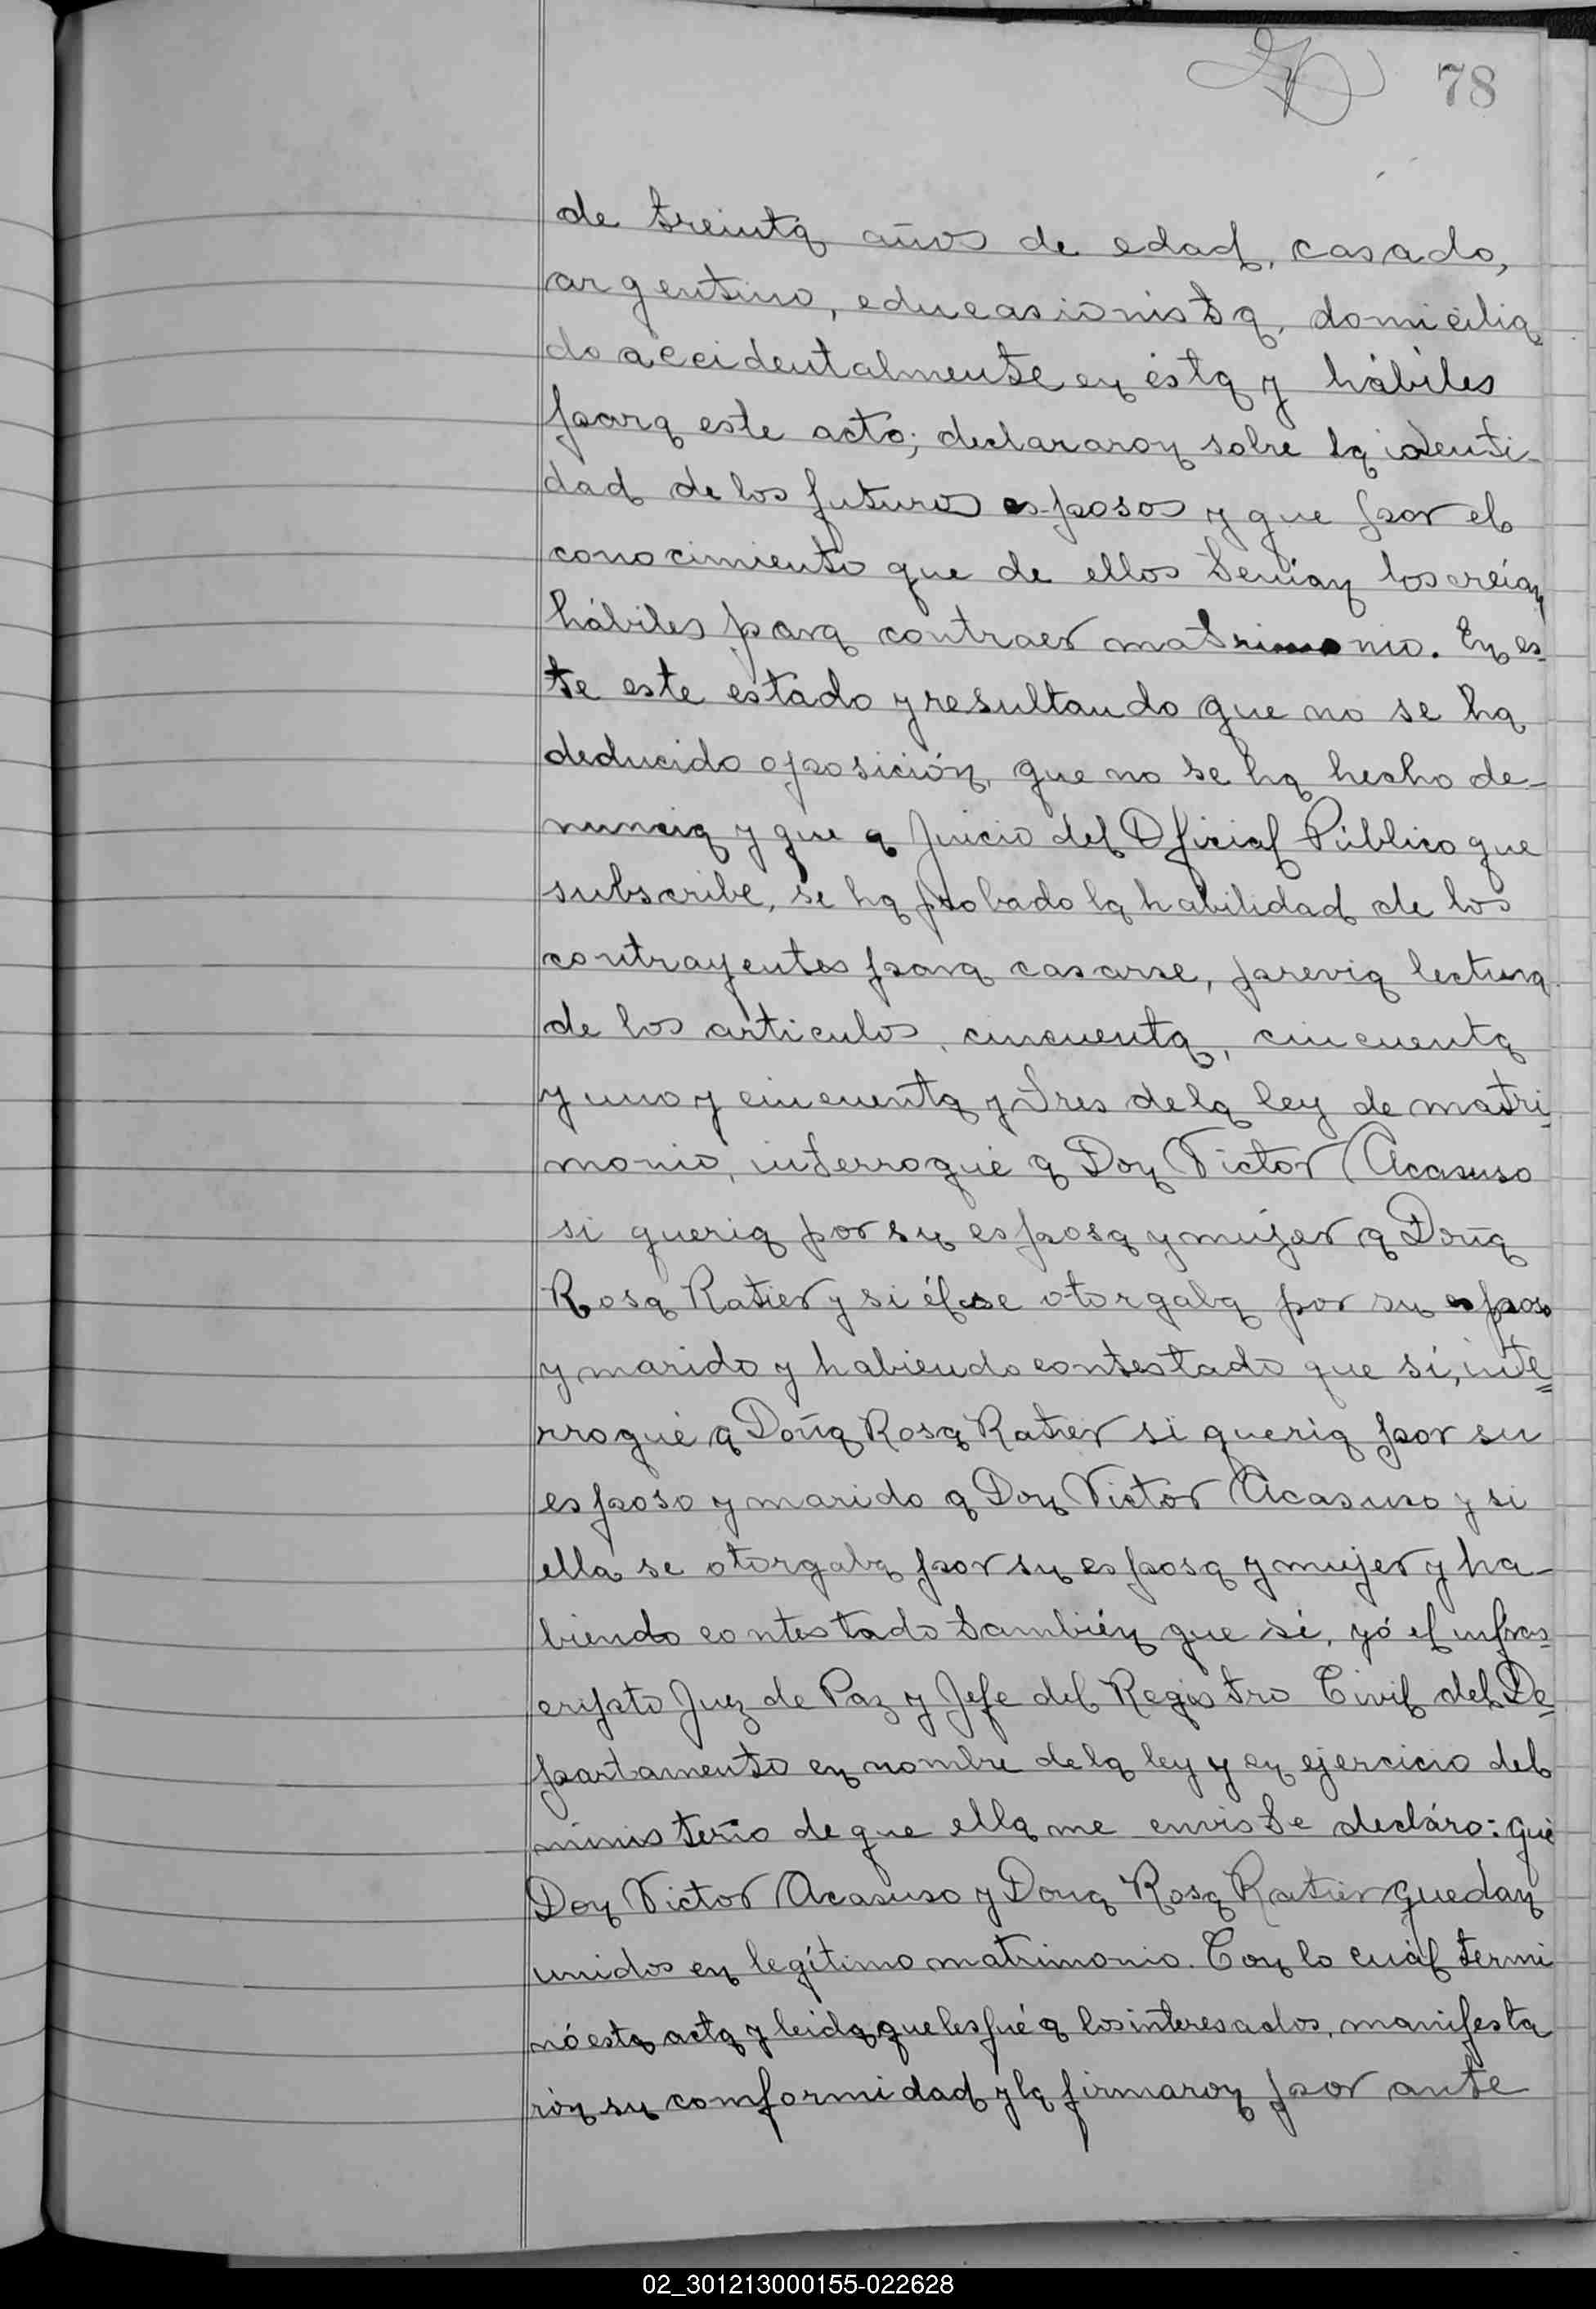 78
de treinta años de edad, casado,
argentino, educasionista, domicilia
do accidentalmente en ésta y hábiles
para este acto; declararon sobre la identi-
dad de los futuros esposos y que por el
conocimiento que de ellos tenían los creían
hábiles para contraer matrimonio. En es-
te este estado y resultando que no se ha
deducido oposición, que no se ha hecho de-
nuncia y que a juicio del Oficial Público que
subscribe, se ha probado la habilidad de los
contrayentes para casarse, previa lectura
de los articulos, cincuenta, cincuenta
y uno y cincuenta y tres de la ley de matri-
monio, interrogué a Don Victor Acasuso
si queria por su esposa y mujer a Doña
Rosa Ratier y si él se otorgaba por su esposo
y marido y habiendo contestado que sí, inte=
rrogué a Doña Rosa Ratier si queria por su
esposo y marido a Don Victor Acasuso y si
ella se otorgaba por su esposa y mujer y ha-
biendo contestado también que sí, yó el infras=
cripto Juez de Paz y Jefe del Registro Civil del De=
partamento en nombre de la ley y en ejercicio del
ministerio de que ella me enviste decláro: que
Don Victor Acasuso y Doña Rosa Ratier quedan
unidos en legítimo matrimonio. Con lo cuál termi
nó esta acta y leida que les fué a los interesados, manifesta
rón su comformidad y la firmaron por ante
02_301213000155-022628